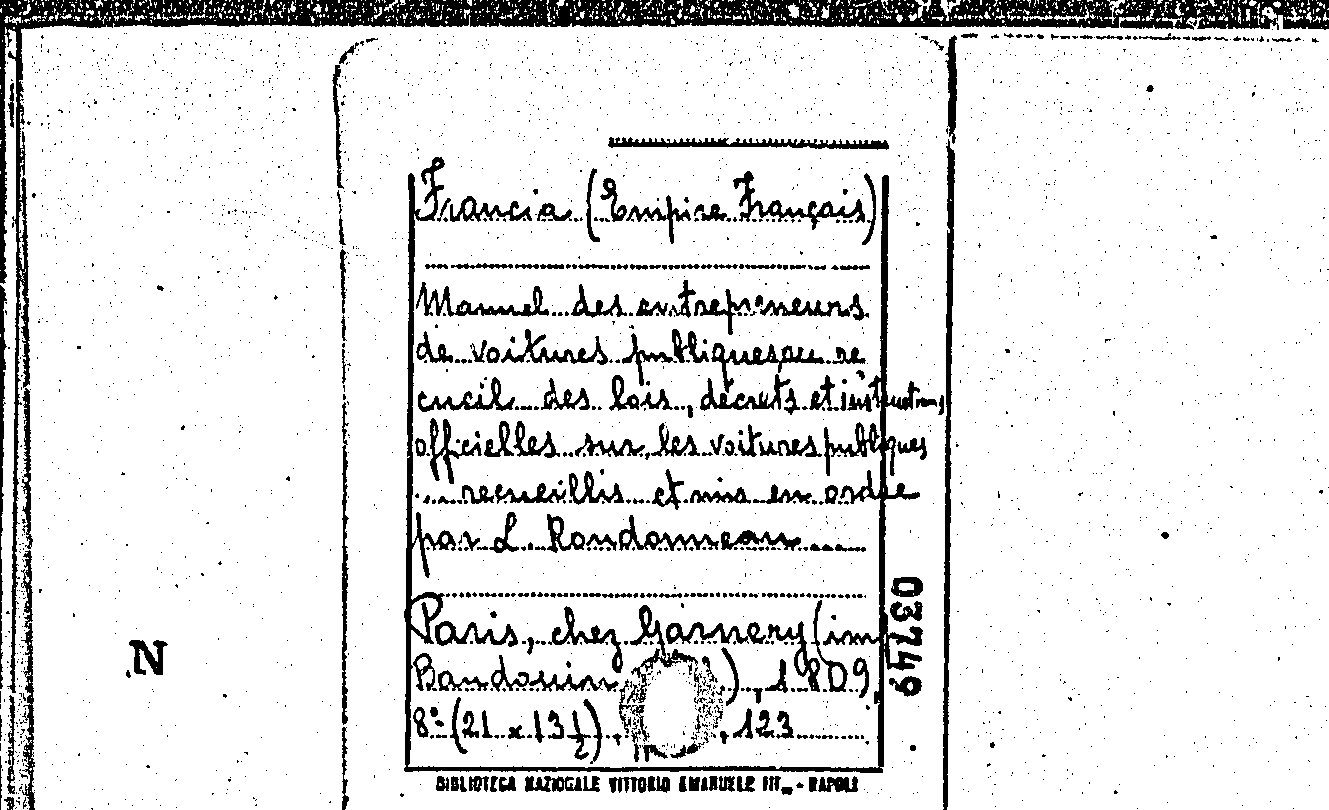 Francia (Empire Français)
Manuel des entrepreneurs
de voitures publiques ou re
cueil des lois, décrets et instructions
officielles sur les voitures publiques
... recueillis et mis en ordre
par L. Rondonneau ....
Paris, chez Garnery (imp
Baudouin ), 1809,
8º (21 x 13 1/2), , 123
03749
N
BIBLIOTECA NAZIONALE VITTORIO EMANUELE III - NAPOLI